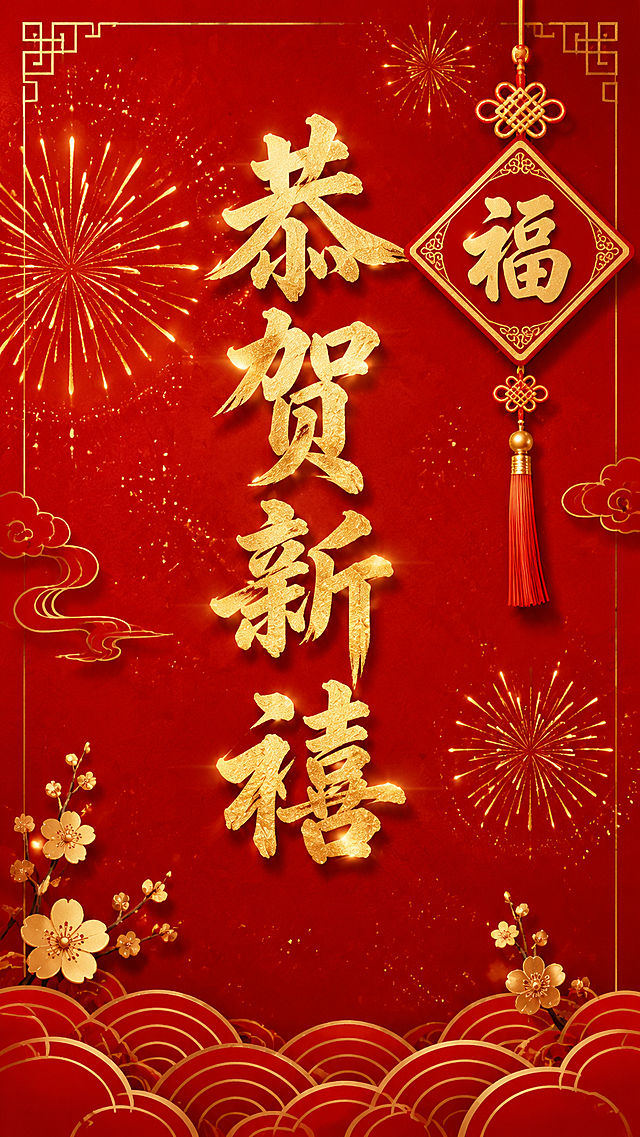 恭贺新禧
福